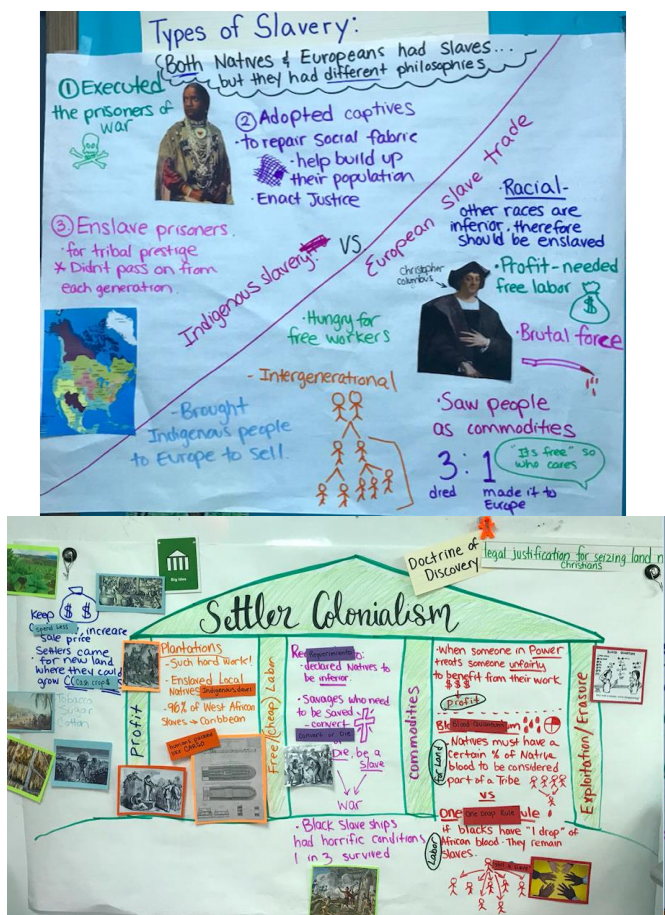 Types of Slavery:
Both Natives & Europeans had Slaves...
but they had different philosophies
① Executed
the prisoners of
war
② Adopted captives
· to repair social fabric
· help build up
their population
· Enact Justice
③ Enslave prisoners.
· for tribal prestige
* Didn't pass on from
each generation.
Indigenous slavery:
VS
European slave trade
· Racial-
other races are
inferior, therefore
should be enslaved
Christopher
columbus
· Profit-needed
free labor
$
· Brutal force
· Hungry for
free workers
- Intergenerational
- Brought
Indigenous people
to Europe to sell.
· Saw people
as commodities
3 : 1
died made it to
Europe
"It's free" so
who cares
Doctrine of
Discovery
legal justification for seizing land n
Christians
Big Idea
Settler Colonialism
$ $
Keep
Spend Less, increase
sale price
Settlers came
· for new land
where they could
grow Cash crops
Tobacco
Sugar
Cotton
Profit
Plantations
- Such hard work!
- Enslaved Local
Natives Indigenous slaves
- 96% of West African
Slaves → Caribbean
humans packed
like CARGO
Free/(cheap) Labor
Requerimiento:
· declared Natives to
be inferior.
· Savages who need
to be saved
- convert
convert or Die
Die, be a
slave
war
· Black slave ships
had horrific conditions
1 in 3 survived
Commodities
· When someone in Power
treats someone unfairly
to benefit from their work.
$$$
profit
Blood Quantum
for Land
Natives must have a
certain % of Native
blood to be considered
part of a Tribe
VS
One Drop Rule
if blacks have "1 drop" of
African blood. They remain
Slaves.
Labor
Exploitation/Erasure